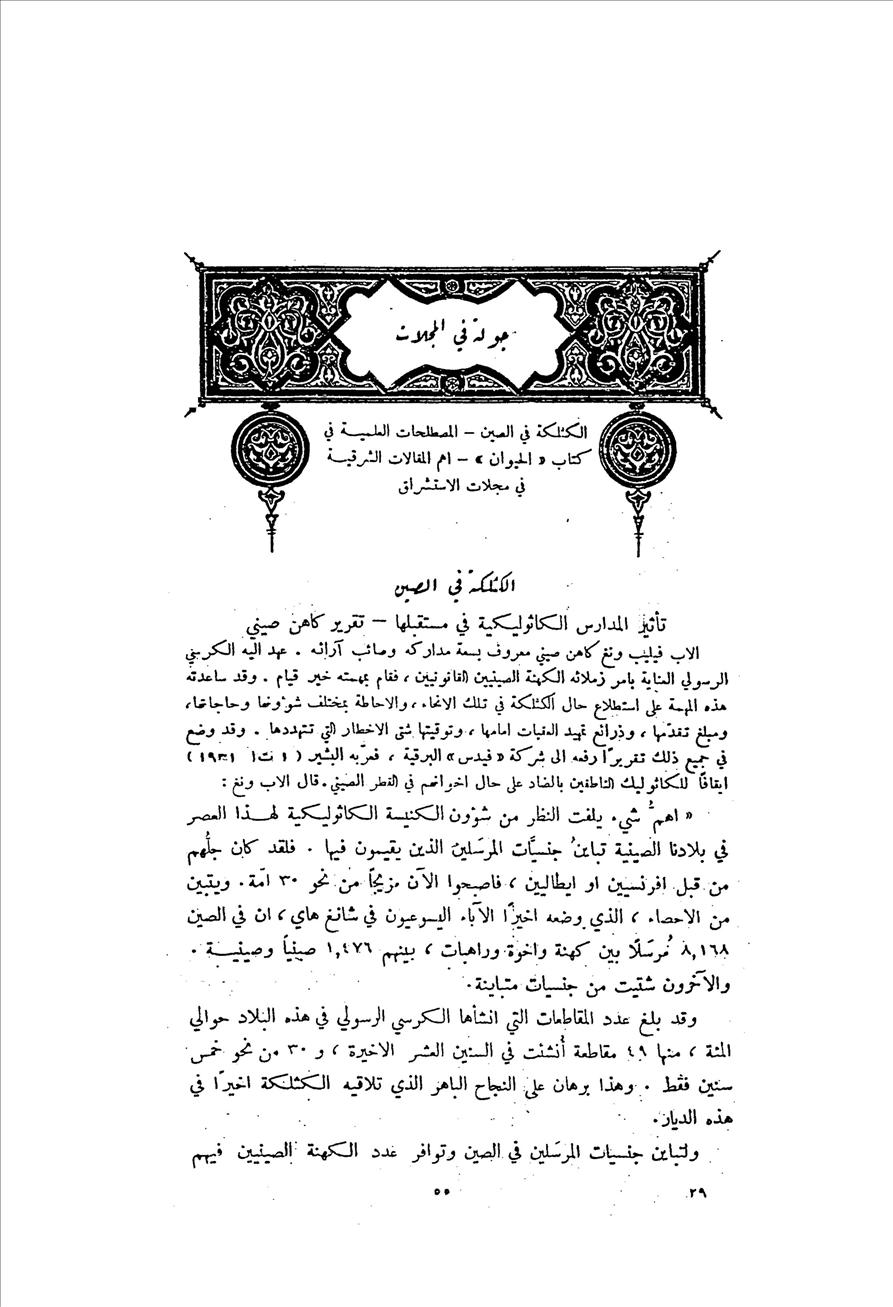 جولة في المجلات
الكثلكة في الصين – المصطلحات العلمية في
كتاب « الحيوان » – اهم المقالات الشرقية
في مجلات الاستشراق
الكثلكة في الصين
تأثير المدارس الكاثوليكية في مستقبلها – تقرير كاهن صيني
الاب فيليب ونغ كاهن صيني معروف بسعة مداركه وصائب آرائه . عهد اليه الكرسي
الرسولي العناية بامر زملائه الكهنة الصينيين القانونيين ، فقام بمهمته خير قيام . وقد ساعدته
هذه المهمة على استطلاع حال الكثلكة في تلك الانحاء ، والاحاطة بمختلف شؤونها وحاجاتها ،
ومبلغ تقدّمها ، وذرائع تمهيد العقبات امامها ، وتوقيتها شتى الاخطار التي تتهددها . وقد وضع
في جميع ذلك تقريرًا رفعه الى شركة « فيدس » البرقية ، فعرّبه البشير ( ١ ت١ ١٩٣١ )
ايقافًا للكاثوليك الناطقين بالضاد على حال اخوانهم في القطر الصيني . قال الاب ونغ :
« اهمُّ شيء يلفت النظر من شؤون الكنيسة الكاثوليكية لهذا العصر
في بلادنا الصينية تباينُ جنسيَّات المرسَلين الذين يقيمون فيها . فلقد كان جلُّهم
من قبل افرنسيين او ايطاليين ، فاصبحوا الآن مزيجًا من نحو ٣٠ امّة . ويتبين
من الاحصاء ، الذي وضعه اخيرًا الآباء اليسوعيون في شانغ هاي ، ان في الصين
٨,١٦٨ مُرسَلًا بين كهنة واخوة وراهبات ، بينهم ١,٤٧٦ صينياً وصينية .
والآخرون شتيت من جنسيات متباينة .
وقد بلغ عدد المقاطعات التي انشأها الكرسي الرسولي في هذه البلاد حوالي
المئة ، منها ٤٩ مقاطعة أُنشئت في السنين العشر الاخيرة ، و ٣٠ من نحو خمس
سنين فقط . وهذا برهان على النجاح الباهر الذي تلاقيه الكثلكة اخيرًا في
هذه الديار .
ولتباين جنسيات المرسَلين في الصين وتوافر عدد الكهنة الصينيين فيهم
٢٩